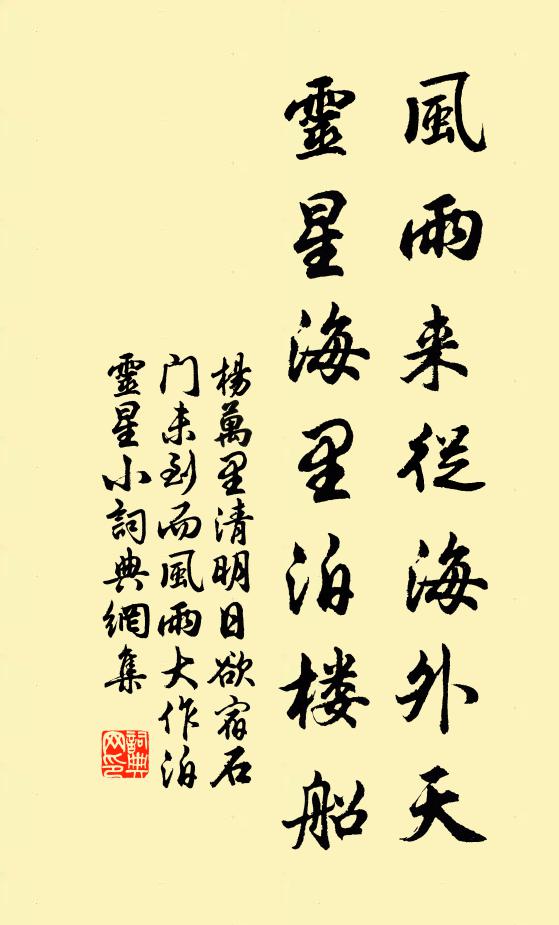 風雨来從海外天
靈星海里泊楼船
楊萬里清明日欲宿石
门未到而風雨大作泊
靈星小詞典網集
詞典
网印